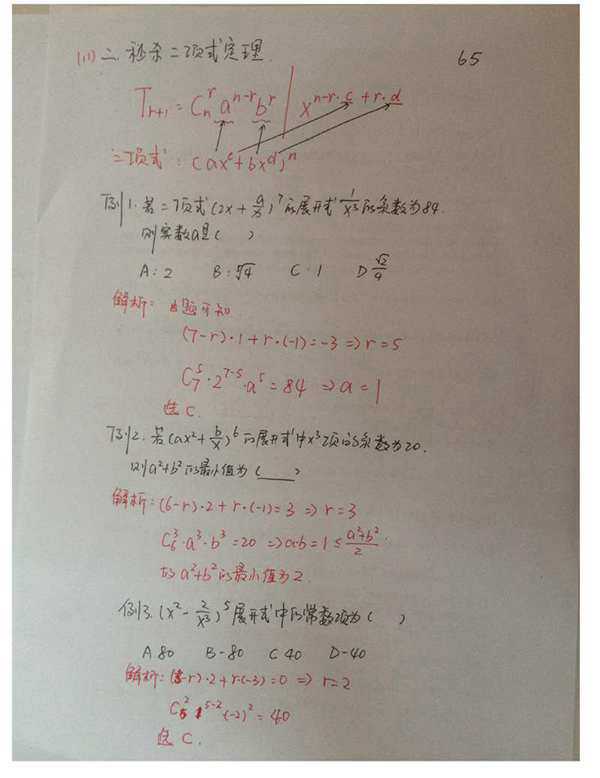 (11) 二. 秒杀二项式定理. 65
T_{r+1} = C_n^r a^{n-r} b^r | x^{n-r·c+r·d}
二项式: (ax^c+bx^d)^n
例1. 若二项式(2x+a/x)^7的展开式1/x^3的系数为84.
则实数a是( )
A: 2 B: ⁵√4 C·1 D √2/4
解析: 由题可知
(7-r)·1+r·(-1)=-3 ⇒ r=5
C_7^5·2^{7-5}·a^5=84 ⇒ a=1
选C.
例2. 若(ax²+b/x)^6的展开式中x³项的系数为20.
则a²+b²的最小值为(___)
解析: (6-r)·2+r·(-1)=3 ⇒ r=3
C_6^3·a³·b³=20 ⇒ a·b=1≤(a²+b²)/2
故a²+b²的最小值为2.
例3. (x²-2/x³)^5展开式中的常数项为( )
A 80 B-80 C 40 D-40
解析: (5-r)·2+r·(-3)=0 ⇒ r=2
C_5^2 1^{5-2}(-2)²=40
选C.